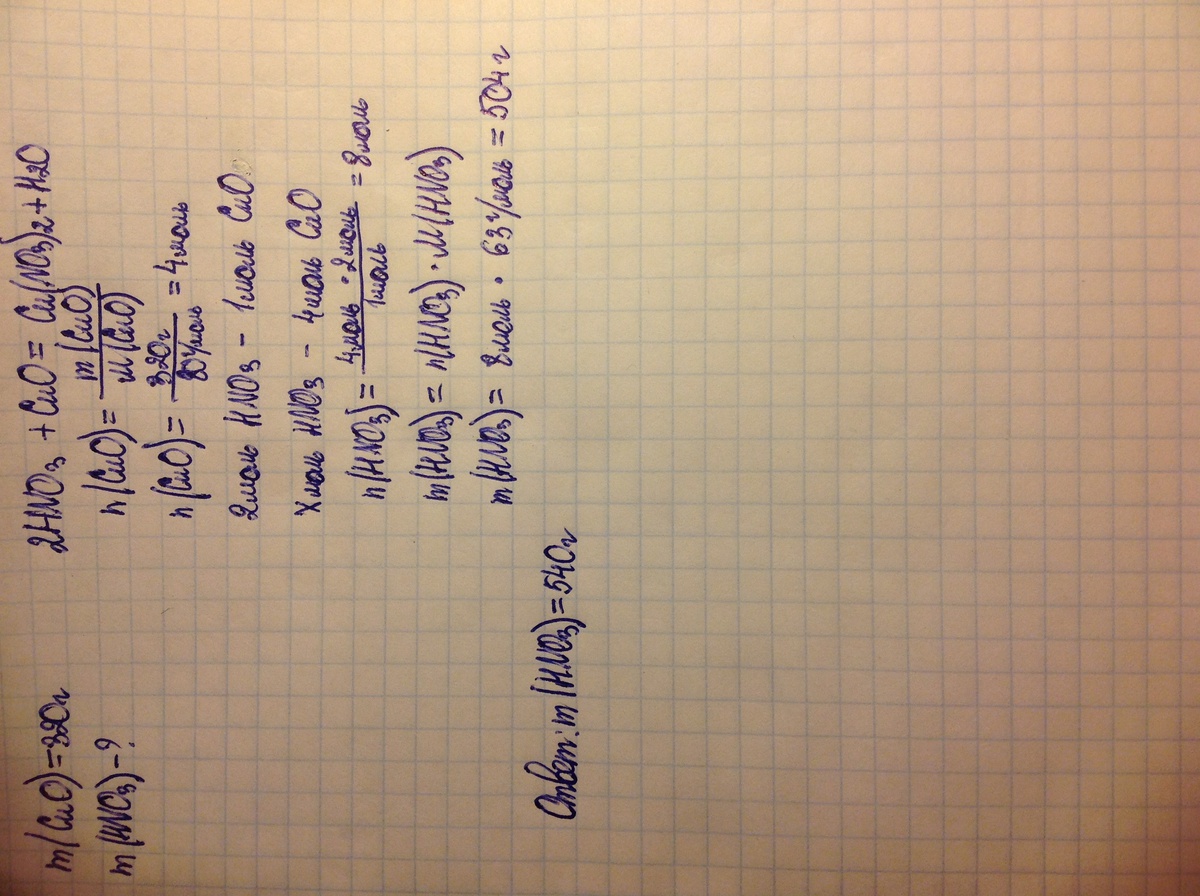 m(CuO)=320г
m(HNO3)-?
2HNO3 + CuO = Cu(NO3)2 + H2O
n(CuO) = m(CuO) / M(CuO)
n(CuO) = 320г / 80г/моль = 4моль
2моль HNO3 - 1моль CuO
Xмоль HNO3 - 4моль CuO
n(HNO3) = 4моль · 2моль / 1моль = 8моль
m(HNO3) = n(HNO3) · M(HNO3)
m(HNO3) = 8моль · 63г/моль = 504г
Ответ: m(HNO3)=540г